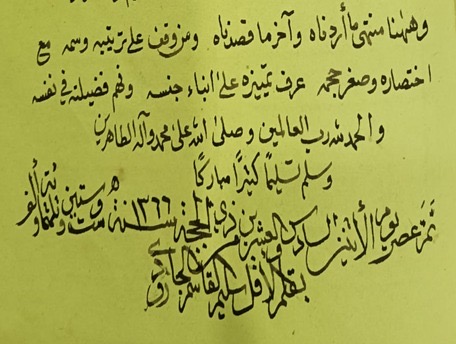 وههنا منتهى ما أردناه وآخر ما قصدناه ومن وقف على ترتيبه وسمه مع
اختصاره وصغر حجمه عرف تميزه على أبناء جنسه وفهم فضيلته في نفسه
والحمد لله رب العالمين وصلى الله على محمد وآله الطاهرين
وسلم تسليما كثيرا مباركا
تمّ عصر يوم الأثنين السادس والعشرين من ذي الحجة سنة ١٣٦٦ ست وستين وثلثماة وألف
بقلم الأقل